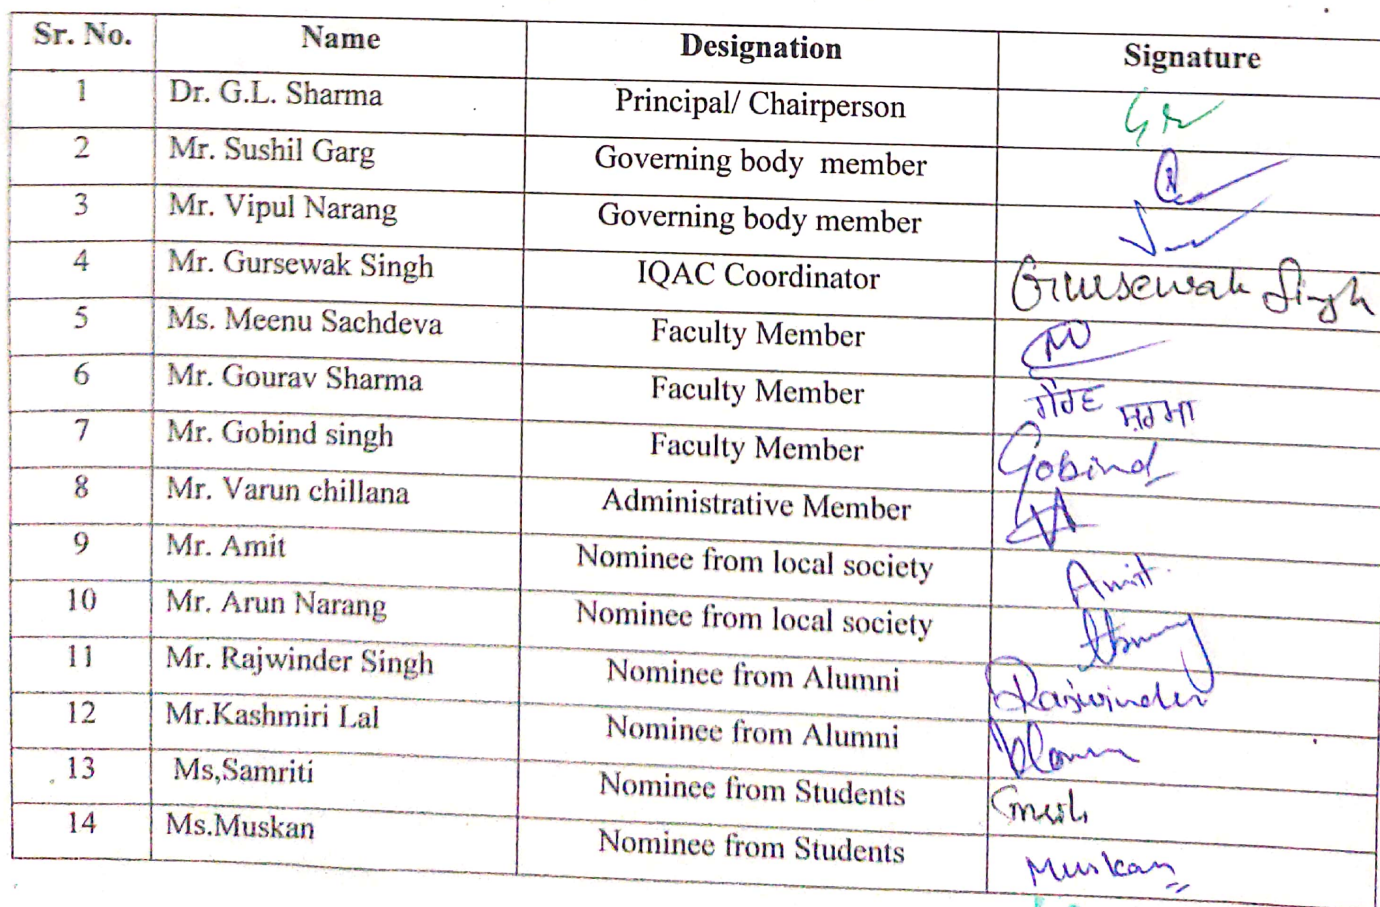 Sr. No. Name Designation Signature
1 Dr. G.L. Sharma Principal/ Chairperson
2 Mr. Sushil Garg Governing body member
3 Mr. Vipul Narang Governing body member
4 Mr. Gursewak Singh IQAC Coordinator Gursewak Singh
5 Ms. Meenu Sachdeva Faculty Member
6 Mr. Gourav Sharma Faculty Member ਗੌਰਵ ਸ਼ਰਮਾ
7 Mr. Gobind singh Faculty Member Gobind
8 Mr. Varun chillana Administrative Member
9 Mr. Amit Nominee from local society Amit
10 Mr. Arun Narang Nominee from local society
11 Mr. Rajwinder Singh Nominee from Alumni Rajwinder
12 Mr.Kashmiri Lal Nominee from Alumni
13 Ms,Samriti Nominee from Students
14 Ms.Muskan Nominee from Students Muskan